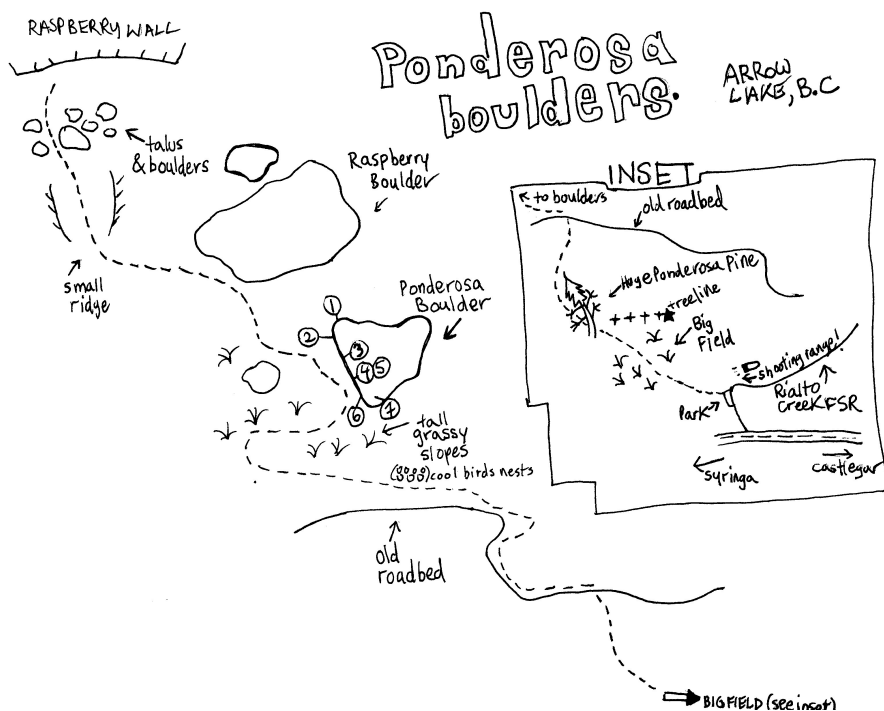 RASPBERRY WALL
Ponderosa
boulders.
ARROW
LAKE, B.C
talus
& boulders
Raspberry
Boulder
small
ridge
Ponderosa
Boulder
1
2
3
4 5
6 7
tall
grassy
slopes
cool birds nests
old
roadbed
BIG FIELD (see inset)
INSET
to boulders
old roadbed
Huge Ponderosa Pine
treeline
Big
Field
shooting range!
Park
Rialto
Creek FSR
Syringa
Castlegar